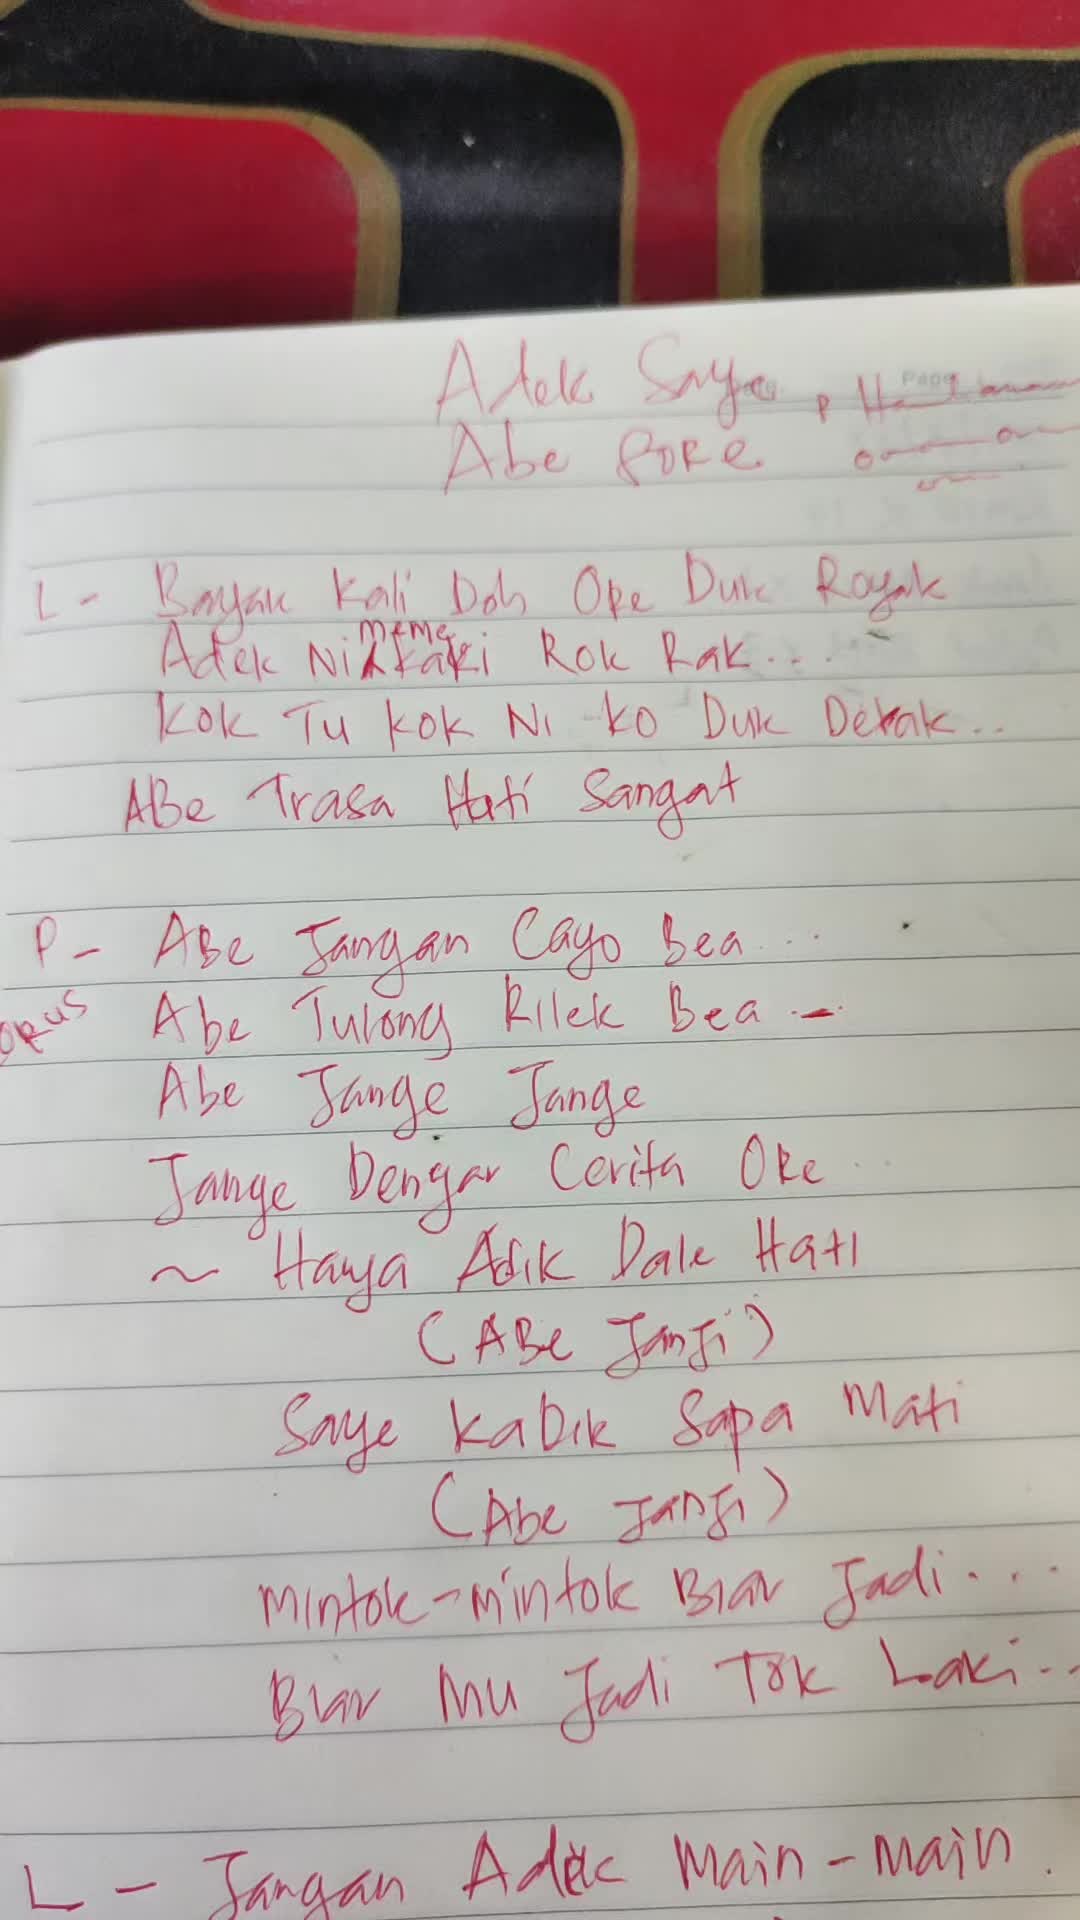 Adek Saye
Abe PoRe
L - Bayak Kali Doh Ore Duk Royak
Adek Ni meme kaki Rok Rak...
Kok Tu Kok Ni Ko Duk Derak..
ABe Trasa Hati Sangat
P - ABe Jangan Cayo Bea...
Abe Tulong Rilek Bea..
Abe Jange Jange
Jange Dengar Cerita ORe..
~ Hanya Adik Dale Hati
(ABe Janji)
Saye KaDik Sapa Mati
(Abe Janji)
Mintok-Mintok Biar Jadi...
Biar Mu Jadi Tok Laki..
L - Jangan Adek Main-Main.